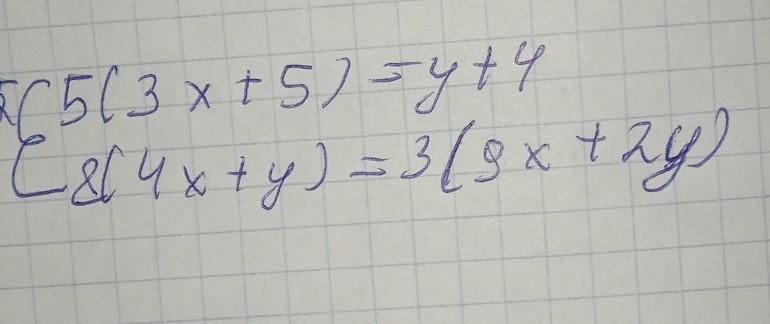 5(3x+5)=y+4
8(4x+y)=3(9x+2y)